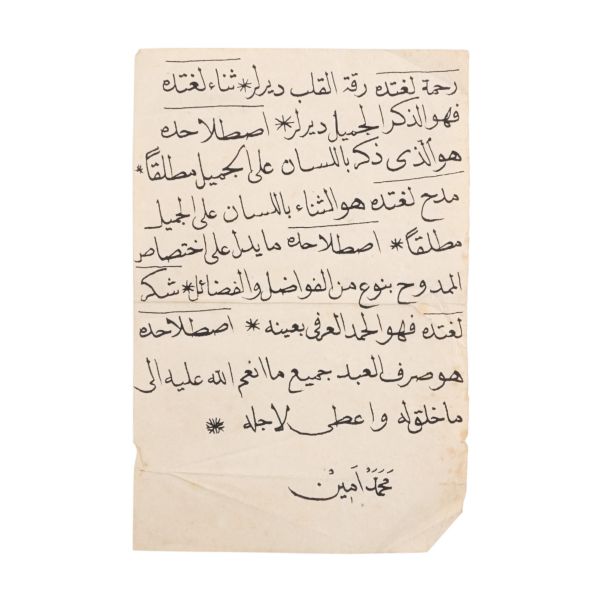 رحمة لغتده رقة القلب ديرلر * ثناء لغتده
فهو الذكر الجميل ديرلر * اصطلاحده
هو الذى ذكر باللسان على الجميل مطلقاً *
مدح لغتده هو الثناء باللسان على الجميل
مطلقاً * اصطلاحده ما يدل على اختصاص
الممدوح بنوع من الفواضل والفضائل * شكر
لغتده فهو الحمد العرفى بعينه * اصطلاحده
هو صرف العبد جميع ما انعم الله عليه الى
ما خلق له واعطى لاجله *
مَحَمَدْ اَمِينْ